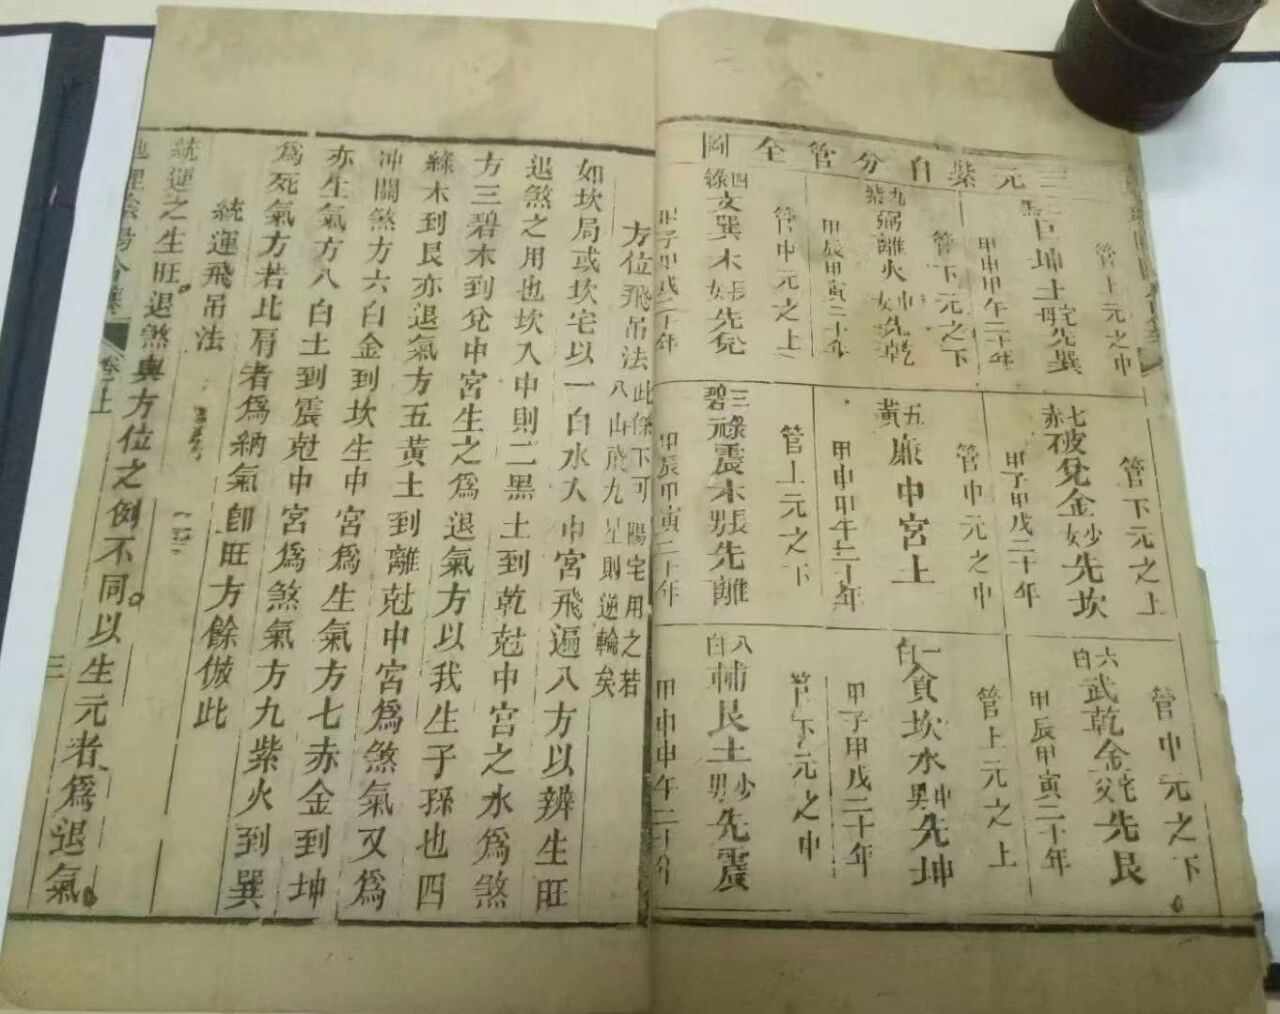 三元紫白分管全圖
二黑巨坤土老母先巽
管上元之中
甲申甲午二十年
九紫弼離火中女先乾
管下元之下
甲辰甲寅二十年
四綠文巽木長女先兌
管中元之上
甲子甲戌二十年
七赤破兌金少女先坎
管下元之上
甲子甲戌二十年
五黃廉中宮土
管中元之中
甲申甲午二十年
三碧祿震木長男先離
管上元之下
甲辰甲寅二十年
六白武乾金老父先艮
管中元之下
甲辰甲寅二十年
一白貪坎水中男先坤
管上元之上
甲子甲戌二十年
八白輔艮土少男先震
管下元之中
甲申甲午二十年
方位飛吊法此條下可陽宅用之若八山飛九星則逆輪矣
如坎局或坎宅以一白水入中宮飛遍八方以辨生旺
退煞之用也坎入中則二黑土到乾尅中宮之水為煞
方三碧木到兌中宮生之為退氣方以我生子孫也四
綠木到艮亦退氣方五黃土到離尅中宮為煞氣又為
冲關煞方六白金到坎生中宮為生氣方七赤金到坤
亦生氣方八白土到震尅中宮為煞氣方九紫火到巽
為死氣方若比肩者為納氣卽旺方餘倣此
統運飛吊法
統運之生旺退煞與方位之例不同以生元者為退氣
地理陰陽合纂
卷一上
三